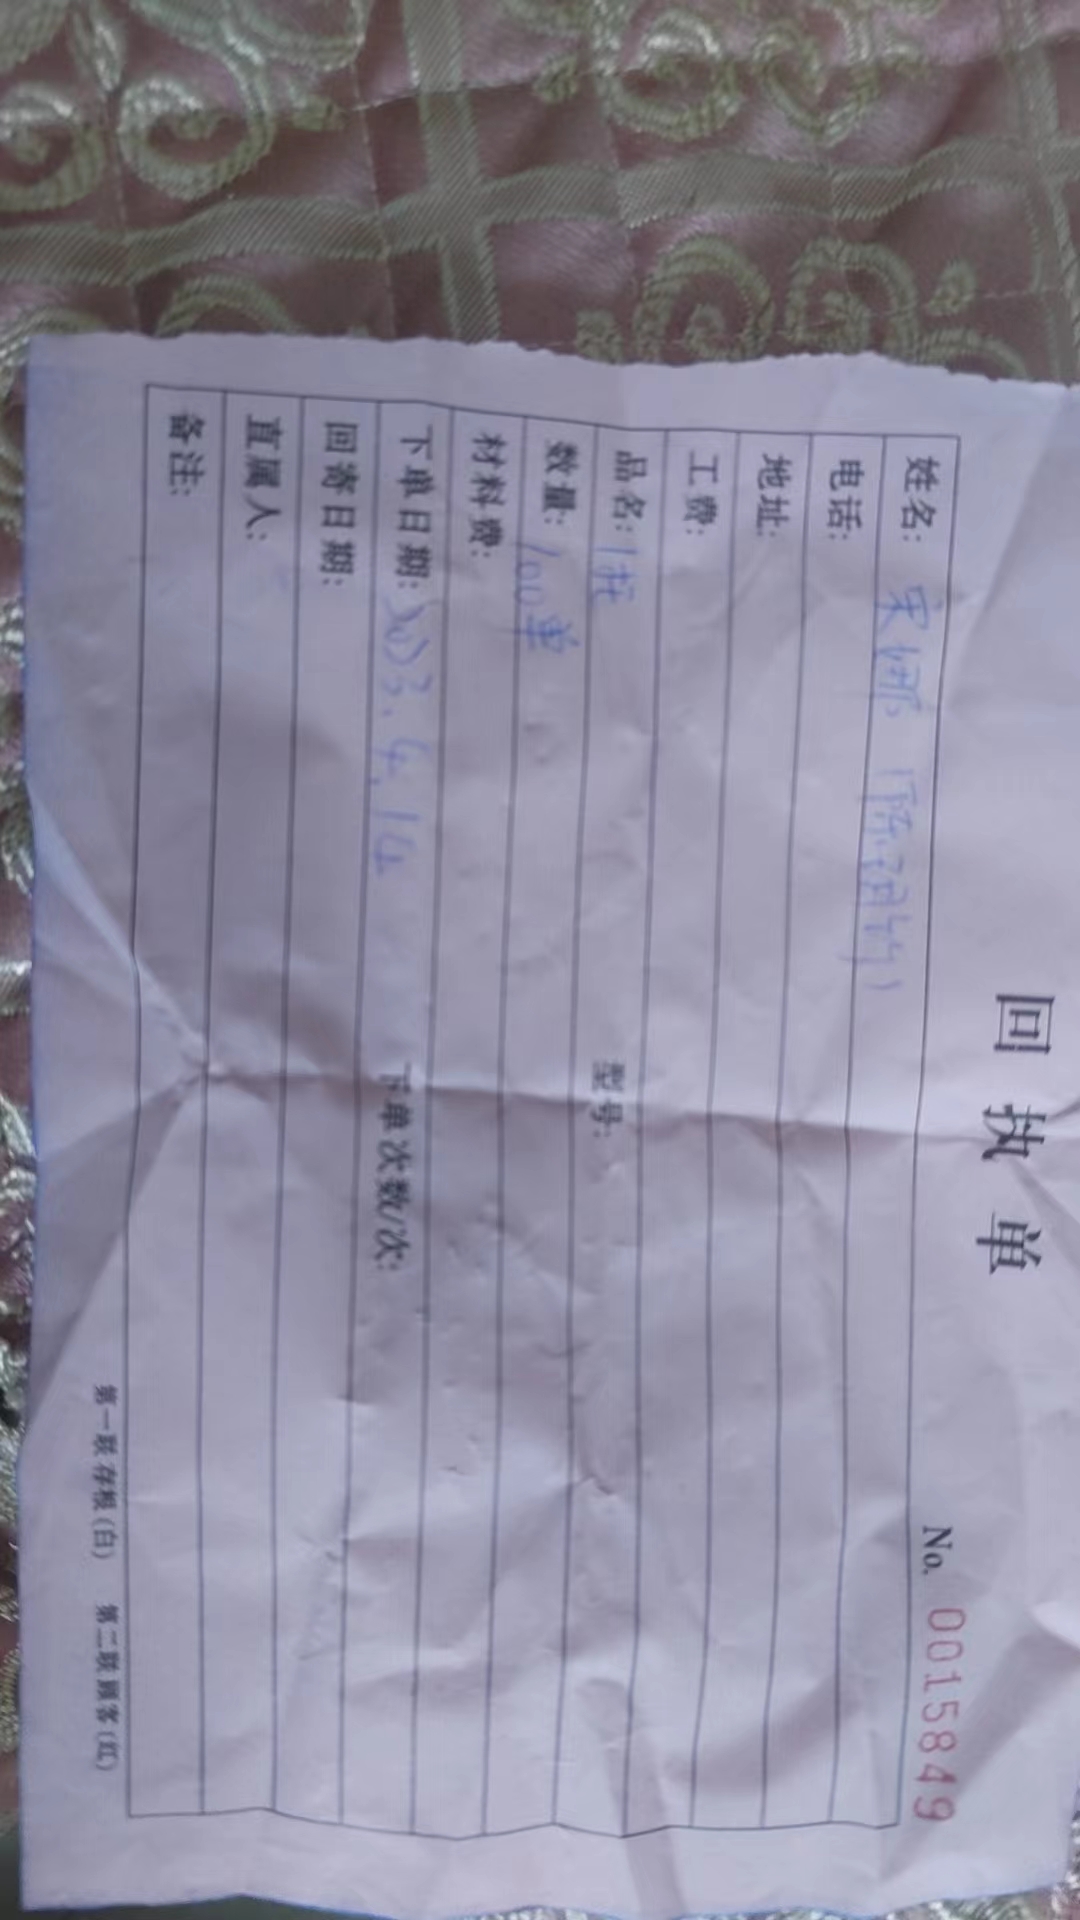 回执单
No. 0015849
姓名: 宋娜（陈润竹）
电话:
地址:
工费:
品名: 1托 型号:
数量: 100单
材料费:
下单日期: 2023.4.14 下单次数/次:
回寄日期:
直属人:
备注:
第一联存根(白) 第二联顾客(红)